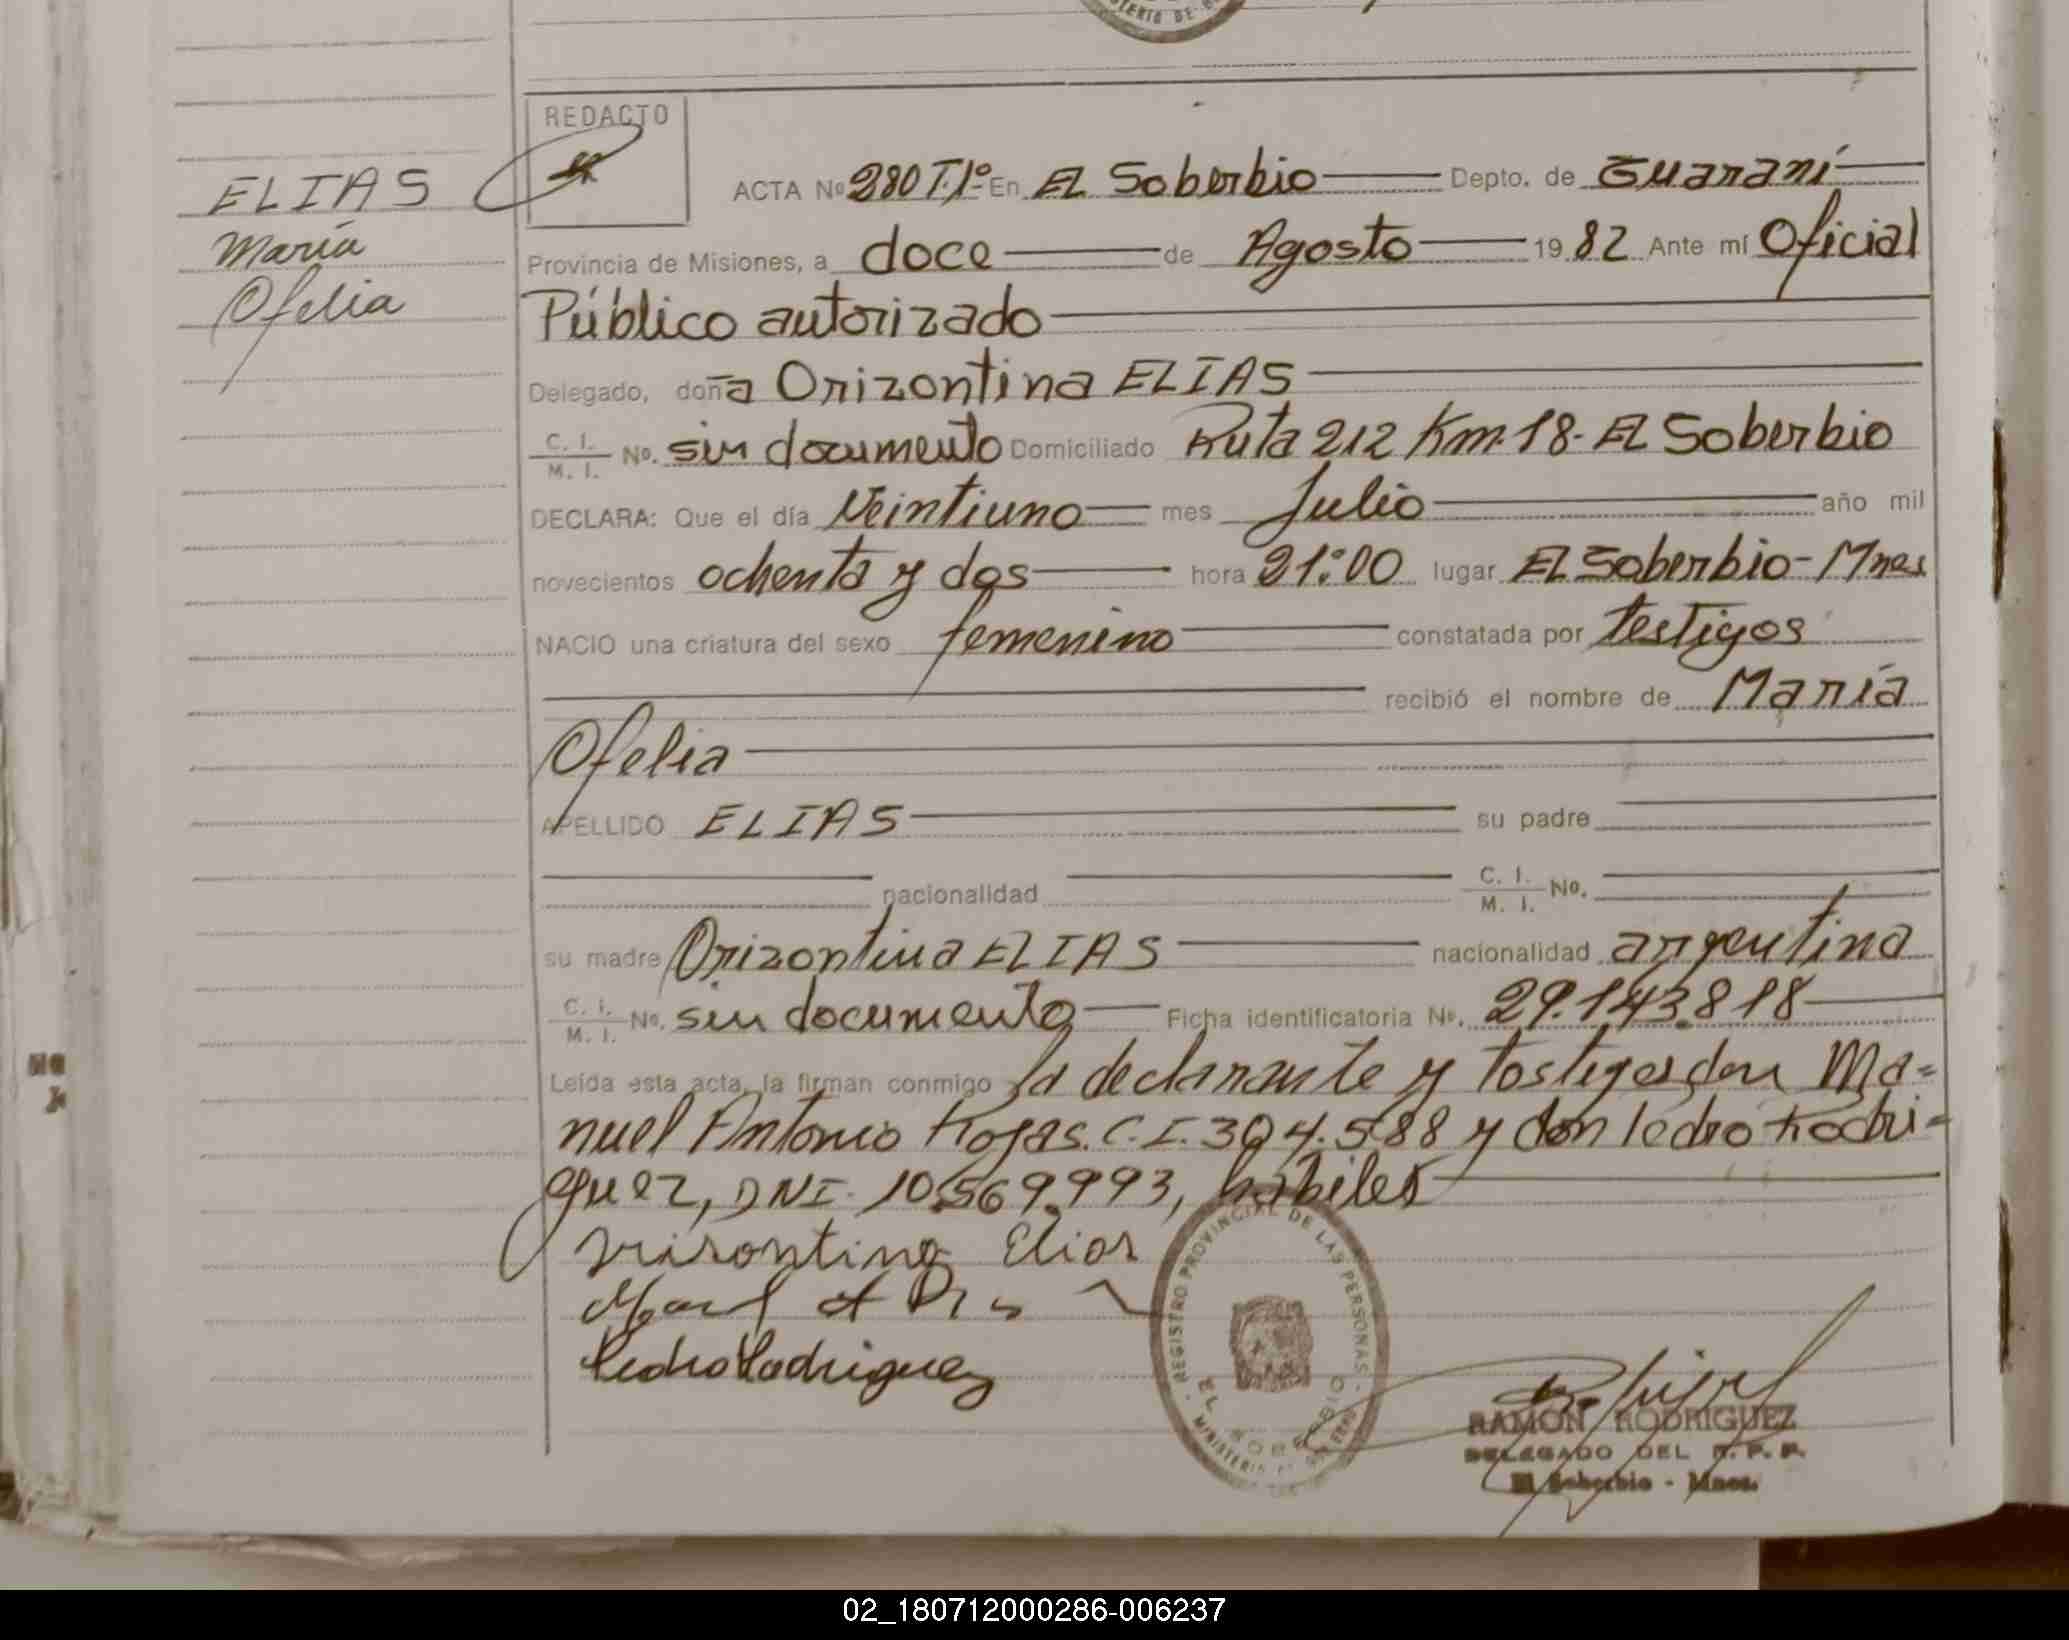 REDACTO
ELIAS
María
Ofelia
ACTA Nº 280 T.1º En El Soberbio Depto. de Guaraní
Provincia de Misiones, a doce de Agosto 19 82 Ante mí Oficial
Público autorizado
Delegado, doña Orizontina ELIAS
C. I. / M. I. No. sin documento Domiciliado Ruta 212 Km. 18 - El Soberbio
DECLARA: Que el día Veintiuno mes Julio año mil
novecientos ochenta y dos hora 21:00 lugar El Soberbio - Mnes
NACIO una criatura del sexo femenino constatada por testigos
recibió el nombre de María
Ofelia
APELLIDO ELIAS su padre
nacionalidad C. I. / M. I. No.
su madre Orizontina ELIAS nacionalidad argentina
C. I. / M. I. No. sin documento Ficha identificatoria No. 29.143.818
Leída esta acta, la firman conmigo la declarante y testigos don Ma=
nuel Antonio Rojas. C.I. 304.588 y don Pedro Rodri=
guez, DNI. 10.569.993, hábiles
Orizontina Elias
Pedro Rodriguez
REGISTRO PROVINCIAL DE LAS PERSONAS
EL SOBERBIO
RAMON RODRIGUEZ
DELEGADO DEL R. P. P.
El Soberbio - Mnes.
02_180712000286-006237